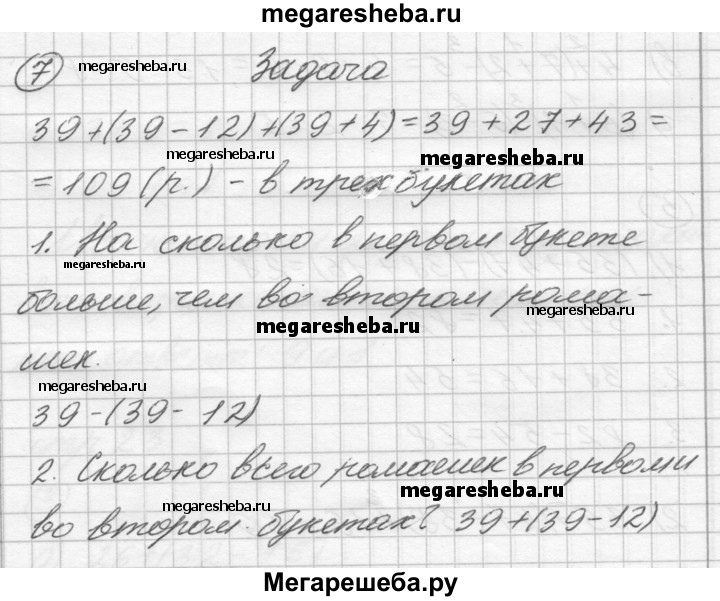 megaresheba.ru
7 megaresheba.ru Задача
39+(39-12)+(39+4)=39+27+43=
megaresheba.ru
=109(р.) - в трех букетах
1. На сколько в первом букете
megaresheba.ru
больше, чем во втором рома-
megaresheba.ru
megaresheba.ru
шек.
megaresheba.ru
39-(39-12)
2. Сколько всего ромашек в первом и
megaresheba.ru
megaresheba.ru
во втором букетах? 39+(39-12)
Мегарешеба.ру